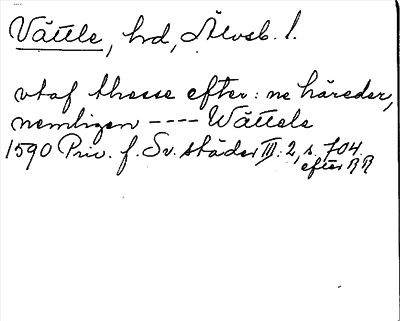 Vättle, hrd, Älvsb. l.
utaf thesse efter: ne häreder,
nemligen ---- Wättele
1590 Priv. f. Sv. städer III: 2, s. 704.
efter RR